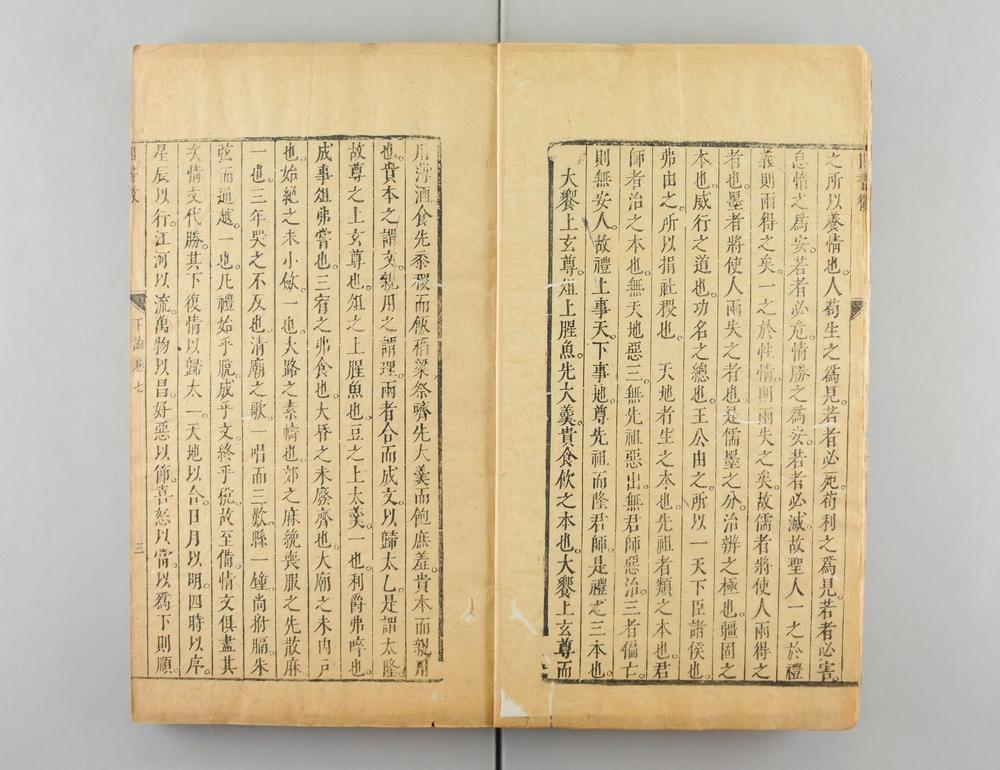 之所以養情也。人苟生之爲見若者必死苟利之爲見。若者必害。
怠惰之爲安。若者必危。情勝之爲安。若者必滅。故聖人一之於禮
義則兩得之矣。一之於性情。則兩失之矣。故儒者將使人兩得之
者也。墨者將使人兩失之者也。是儒墨之分。治辨之極也。彊固之
本也。威行之道也。功名之總也。王公由之。所以一天下臣諸侯也。
弗由之。所以捐社稷也。天地者生之本也。先祖者類之本也。君
師者治之本也。無天地惡三。無先祖惡出。無君師惡治。三者偏亡。
則無安人。故禮上事天。下事地。尊先祖而隆君師。是禮之三本也。
大饗上玄尊。俎上腥魚。先大羹。貴食飲之本也。大饗上玄尊而
用薄酒。食先黍稷而飯稻粱。祭嚌先大羹而飽庶羞。貴本而親用
也。貴本之謂文。親用之謂理。兩者合而成文。以歸太乙。是謂太隆。
故尊之上玄尊也。俎之上腥魚也。豆之上太羹。一也。利爵弗啐也。
成事俎弗嘗也。三宥之弗食也。大昏之未廢齊也。大廟之未內尸
也。始絕之未小斂。一也。大路之素幬也。郊之麻絻。喪服之先散麻
一也。三年哭之不反也。清廟之歌。一唱而三歎。縣一鐘尚拊膈。朱
弦而通越。一也。凡禮始乎脫。成乎文。終乎悅。故至備。情文俱盡。其
次情文代勝。其下復情以歸太一。天地以合。日月以明。四時以序。
星辰以行。江河以流。萬物以昌。好惡以節。喜怒以當。以爲下則順。
下論卷七
三